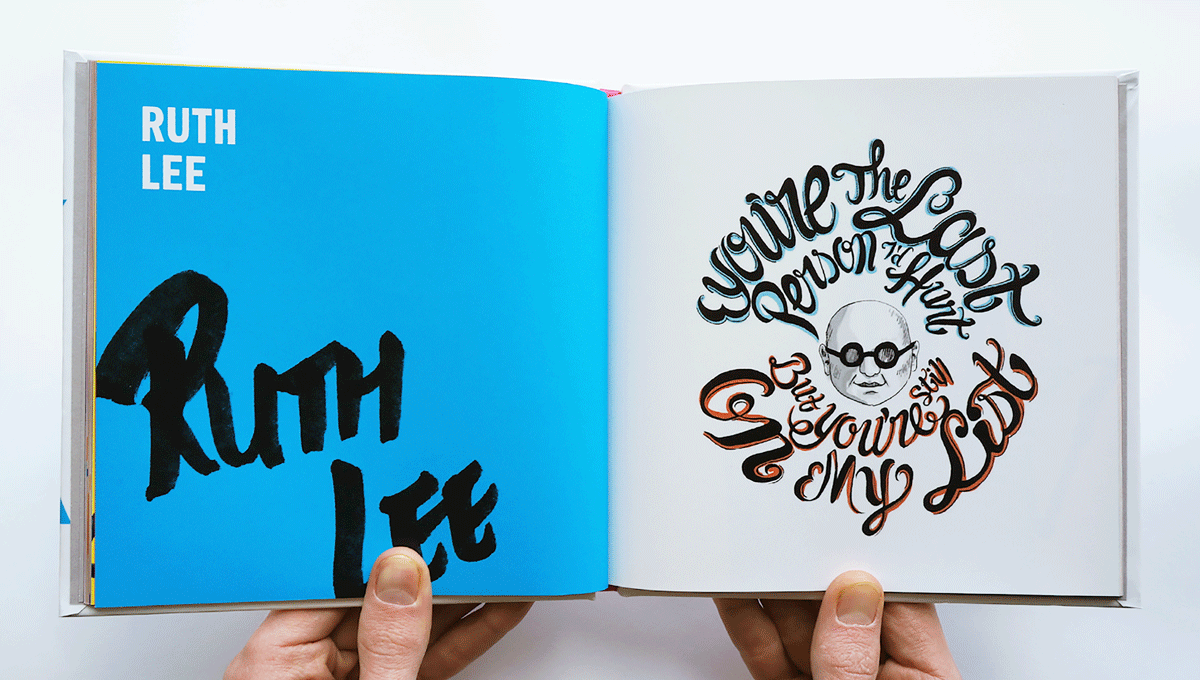 RUTH
LEE
RUTH
LEE
You're The Last
Person I'd Hurt
But You're Still
On My List